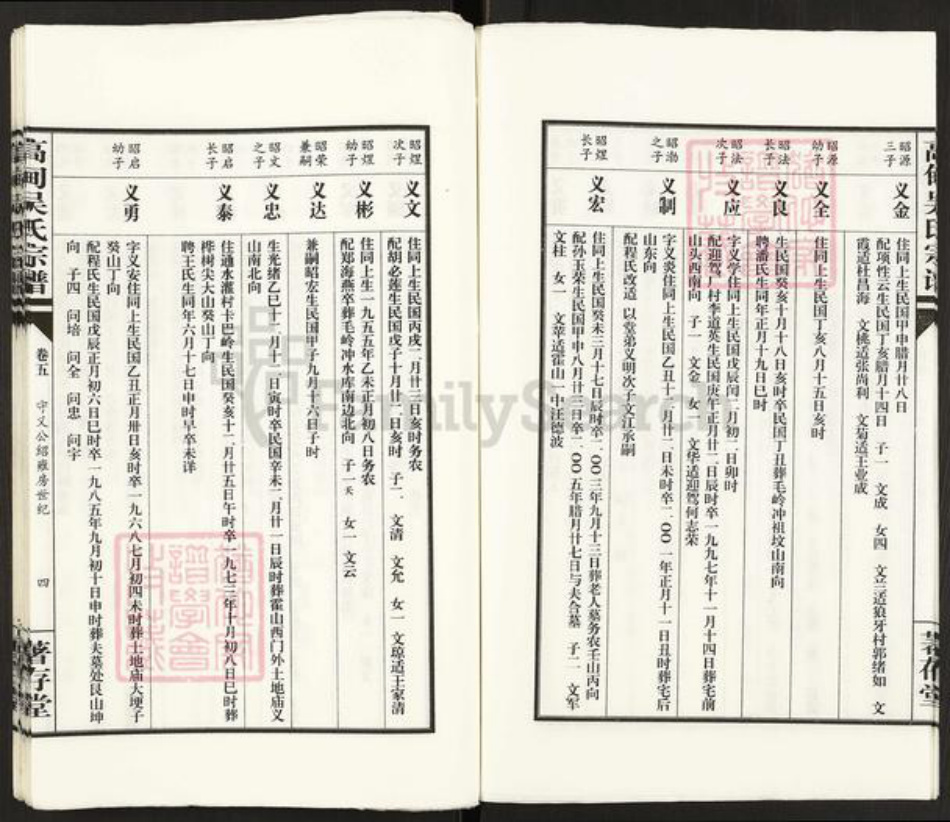 昭源
三子
义金
住同上生民国甲申腊月廿八日
配项性云生民国丁亥腊月十四日 子一 文成 女四 文兰适狼牙村郭绪如 文
霞适杜昌海 文桃适张尚利 文菊适王业成
昭源
幼子
义全
住同上生民国丁亥八月十五日亥时
昭法
长子
义良
生民国癸亥十月十八日亥时卒民国丁丑葬毛岭冲祖坟山南向
聘潘氏生同年正月十九日巳时
昭法
次子
义应
字义学住同上生民国戊辰闰二月初二日卯时
配迎驾厂村李道英生民国庚午正月廿二日辰时卒一九九七年十一月十四日葬宅前
山头西南向 子一 文金 女一 文华适迎驾何志荣
昭渤
之子
义制
字义炎住同上生民国乙丑十二月廿二日未时卒二〇〇一年正月十一日丑时葬宅后
山东向
配程氏改适 以堂弟义明次子文江承嗣
昭煋
长子
义宏
住同上生民国癸未三月十七日辰时卒二〇〇三年九月十三日葬老人墓务农壬山丙向
配孙玉荣生民国甲申八月廿三日卒二〇〇五年腊月廿七日与夫合墓 子二 文军
文柱 女一 文苹适霍山一中汪德波
高甸吴氏宗谱
著存堂
昭煋
次子
义文
住同上生民国丙戌二月廿三日亥时务农
配胡必莲生民国戊子十月廿二日亥时 子二 文清 文允 女一 文琼适王家清
昭煋
幼子
义彬
住同上生一九五五年乙未正月初八日务农
配郑海燕卒葬毛岭冲水库南边北向 子一 夭 女一 文云
昭荣
兼嗣
义达
兼嗣昭宏生民国甲子九月十六日子时
昭文
之子
义忠
生光绪乙巳十二月十二日寅时卒民国辛未二月廿一日辰时葬霍山西门外土地庙义
山南北向
昭启
长子
义泰
住通水灌村卡巴岭生民国癸亥十二月廿五日午时卒一九七三年十月初八日巳时葬
桦树尖大山癸山丁向
聘王氏生同年六月十七日申时早卒未详
昭启
幼子
义勇
字义安住同上生民国乙丑正月卅日亥时卒一九六八七月初四未时葬土地庙大埂子
癸山丁向
配程氏生民国戊辰正月初六日巳时卒一九八五年九月初十日申时葬夫墓处艮山坤
向 子四 问培 问全 问忠 问宇
高甸吴氏宗谱
卷五
守义公绍雍房世纪
四
著存堂
FamilySearch